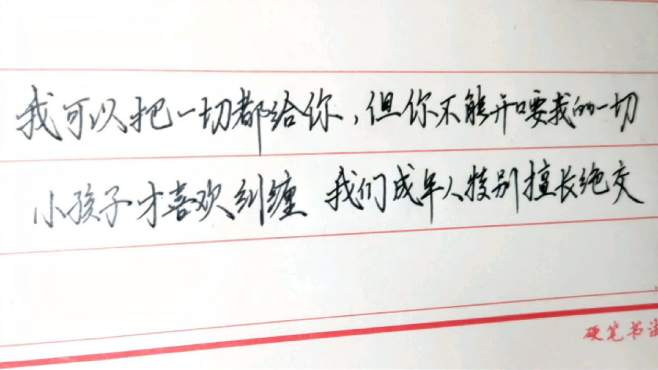 我可以把一切都给你，但你不能开口要我的一切
小孩子才喜欢纠缠 我们成年人特别擅长绝交
硬笔书法